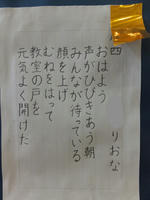 四
りおな
おはよう
声がひびきあう朝
みんなが待っている
顔を上げ
むねをはって
教室の戸を
元気よく開けた